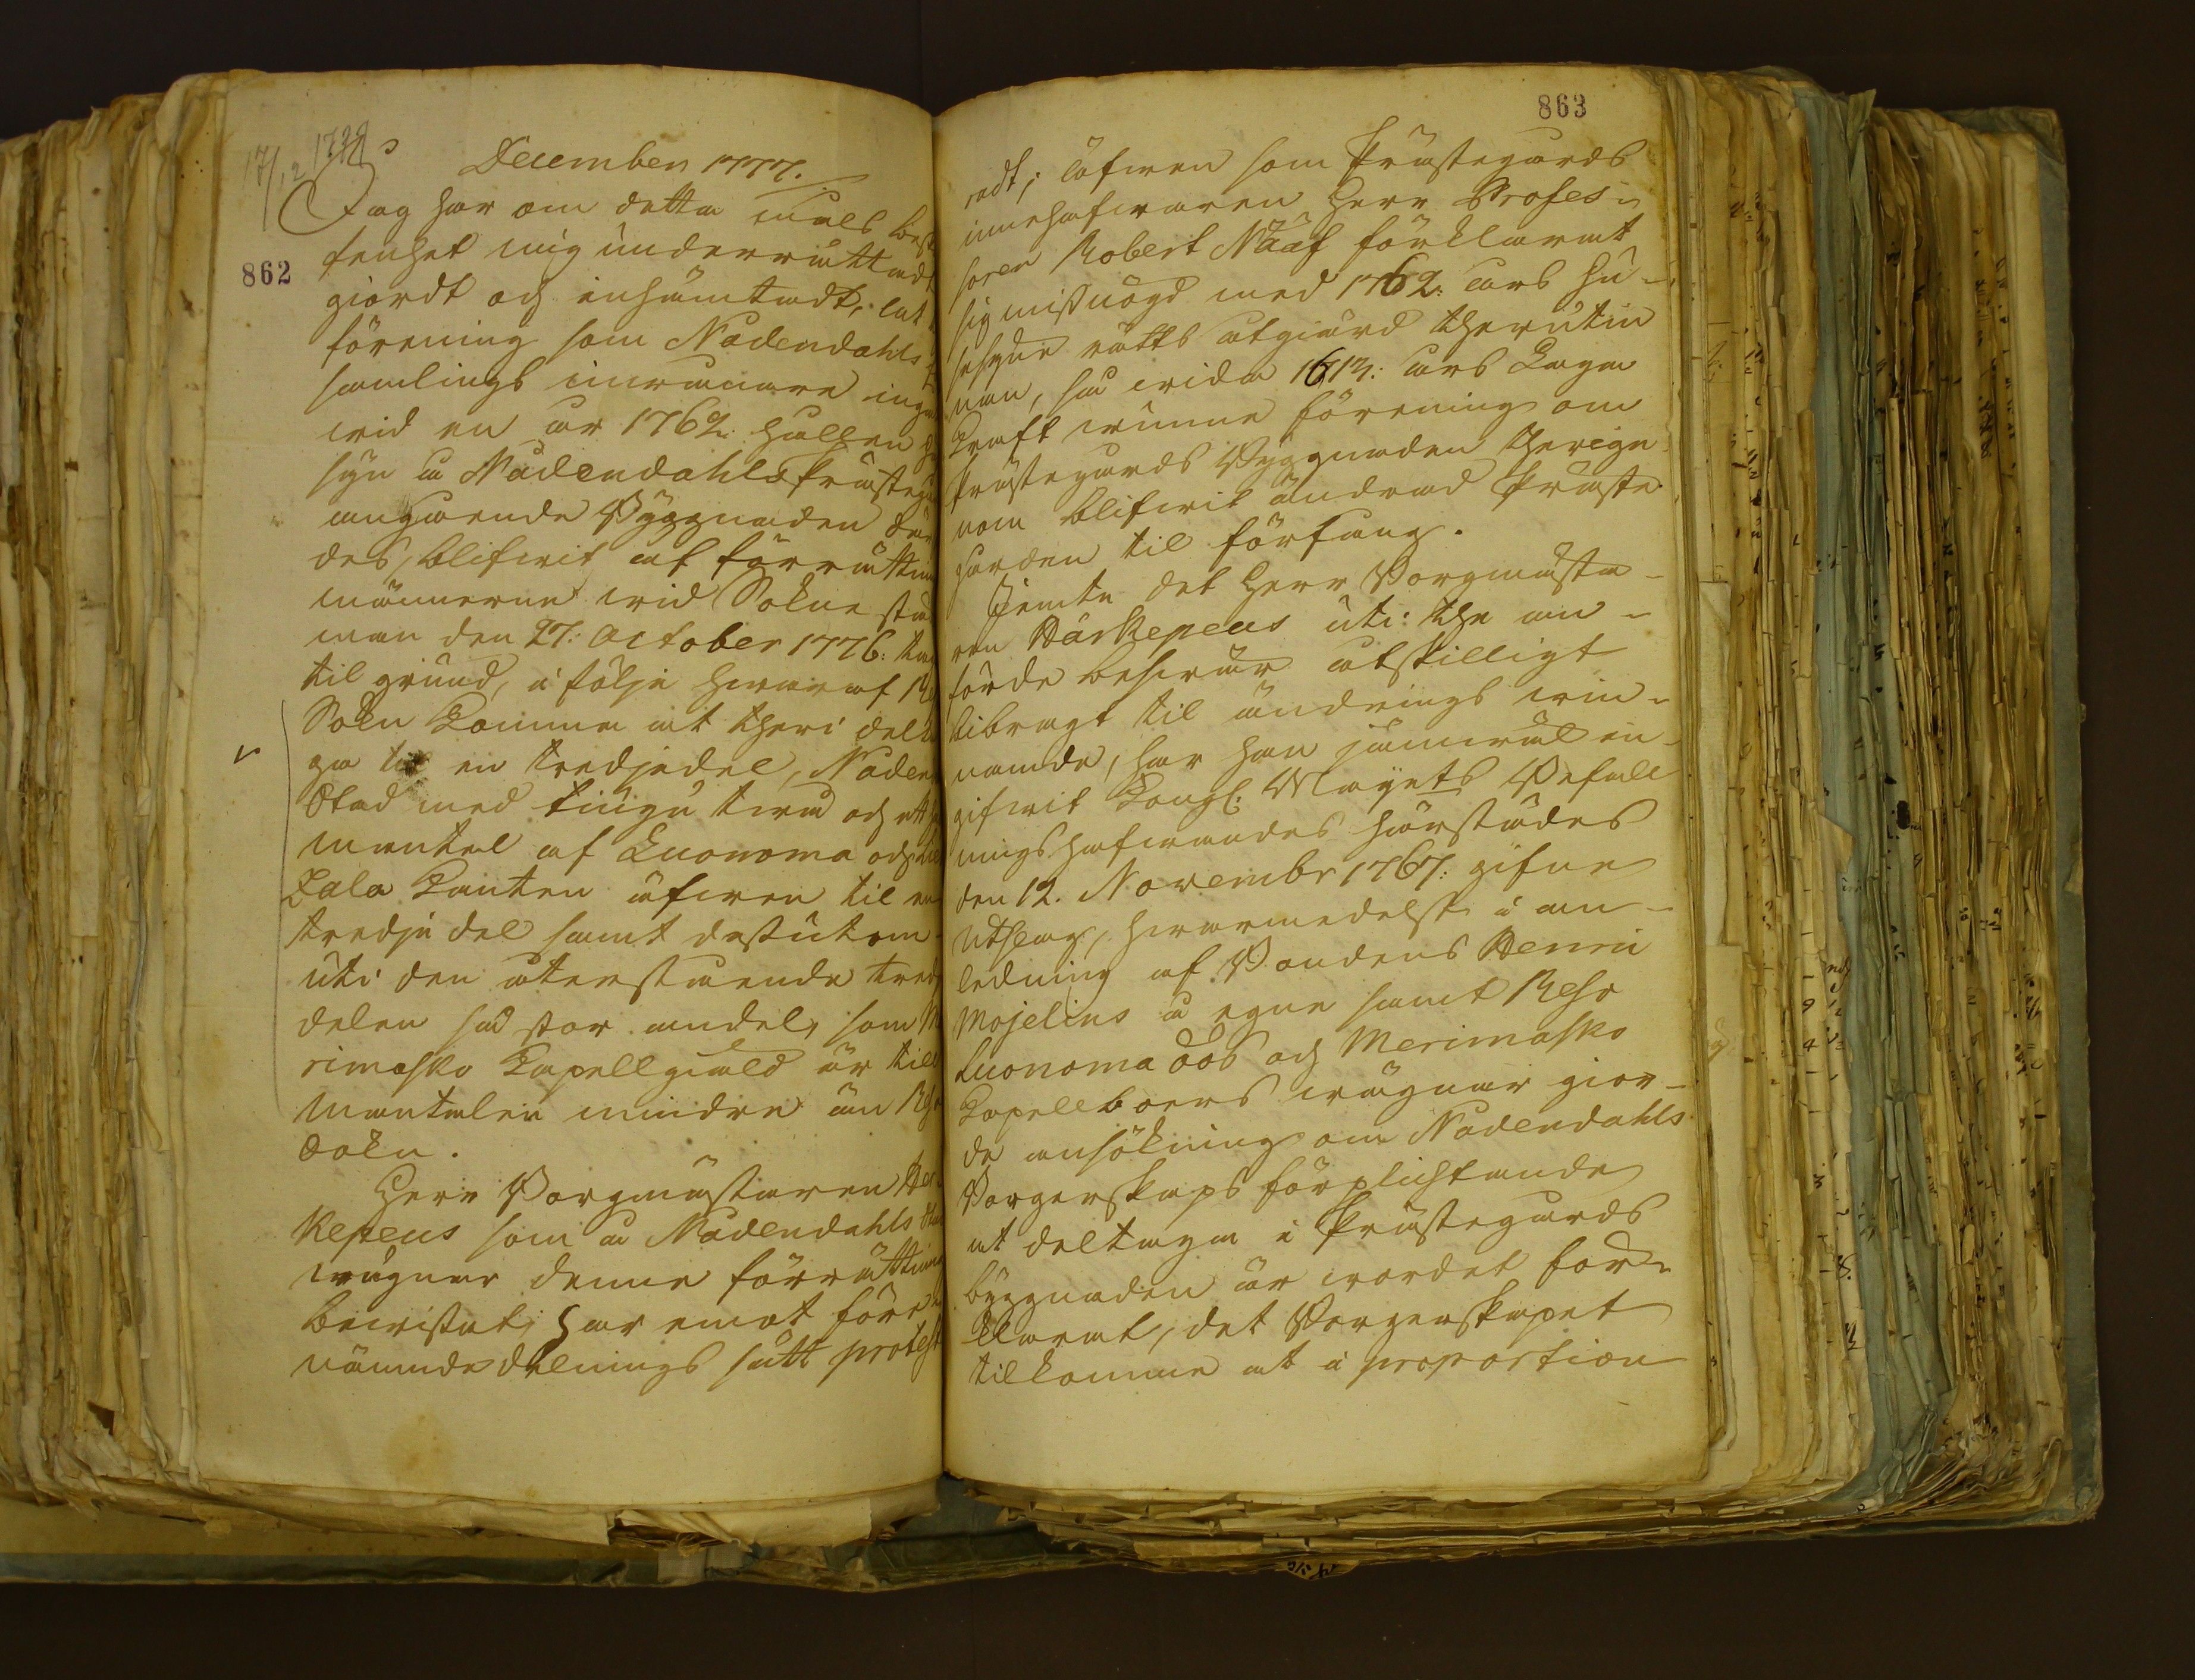 862
December 1777.
Jag har om detta måls
fenhet mig underrättadt
giordt och inhämtadt, at
förening som Nådendahls
samlings invånare ingå
wid en år 1762 hållen
syn å Nådendahls Prästegå
angående Byggnaden
des, blifwit af förrättnings
männerne wid Sokne stä
man den 27: October 1776:
til grund, i följe hwaraf
Sokn komma at theri del
ga til en tredjedel, Nåden
Stad med tiugu twå och ett
mantal af Luonoma och
Lala Kanten äfwen til en
tredje del samt dessutom
uti den återstående tredje
delen så stor andel, som Me
rimasko Capellgiäld är til
Mantalen mindre än Reso
Sokn.
Herr Borgmästaren Her
kepeus som å Nådendahls Stads
wägnar denne förrättning
bewistat, har emot före
nämnde delnings sätt protest
863
radt; äfwen som Prästegårds
innehafwaren Herr Profes-
soren Robert Nääf förklarat
sig missnögd med 1762: års hu-
sesyns rätts åtgiärd therutin
nan, så wida 1613: års Laga
Kraft wunne förening om
Prästegårds Byggnaden therige
nom blifwit ändrad Präste
garden til förfång.
Jemte det Herr Borgmästa-
ren Härkepeus uti the an-
förde beswär åtskilligt
tibragt til ändrings win-
nande, har han jämwäl in-
gifwit Kongl: Mayts Befall
ningshafwandes härstädes
den 12. Novembr 1767: gifne
Utslag, hwarmedelst i an-
ledning af Bondens Henric
Mojelius å egne samt Reso
Luonoma Öös och Merimasko
Capellboers wägnar gior-
de ansökning om Nådendahls
Borgerskaps förplichtande
at deltaga i Prästegårds
byggnaden är wordet för-
klarat, det Borgerskapet
tilkomme at i proportion